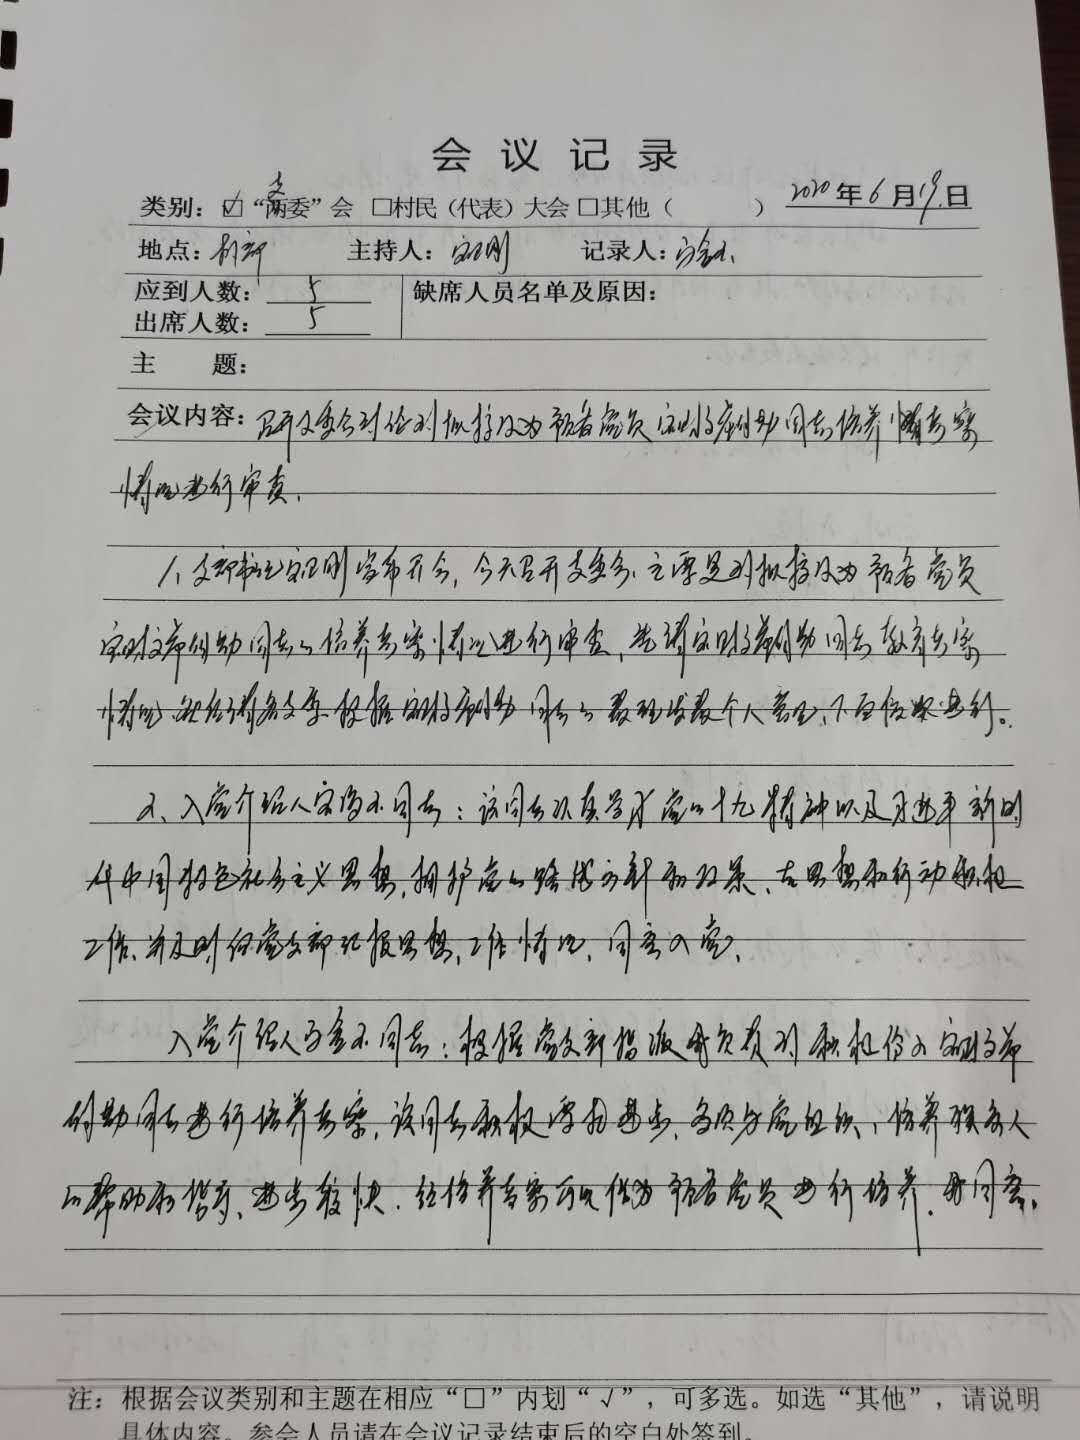 会议记录
类别：☑“两支委”会 □村民（代表）大会 □其他（ ） 2020年6月19日
地点：村部 主持人： 记录人：
应到人数：5 缺席人员名单及原因：
出席人数：5
主 题：
会议内容：召开支委会讨论对拟接收为预备党员 同志培养考察
情况进行审查.
1、支部书记 宣布开会，今天召开支委会、主要是对拟接收为预备党员
同志的培养考察情况进行审查，先请 同志教育考察
情况 根据 同志的表现发表个人意见，下面依次进行。
2、入党介绍人 同志：该同志认真学习党的十九精神以及习近平新时
代中国特色社会主义思想，拥护党的路线方针和政策、在思想和行动积极
工作、并及时向党支部汇报思想，工作情况，同意入党，
入党介绍人 同志：根据党支部指派我负责对积极份子
同志进行培养考察，该同志积极要求进步， 党组织，培养联系人
的帮助和指导，进步较快. 经培养考察 作为预备党员进行培养，我同意。
注：根据会议类别和主题在相应“□”内划“√”，可多选。如选“其他”，请说明
具体内容。参会人员请在会议记录结束后的空白处签到。